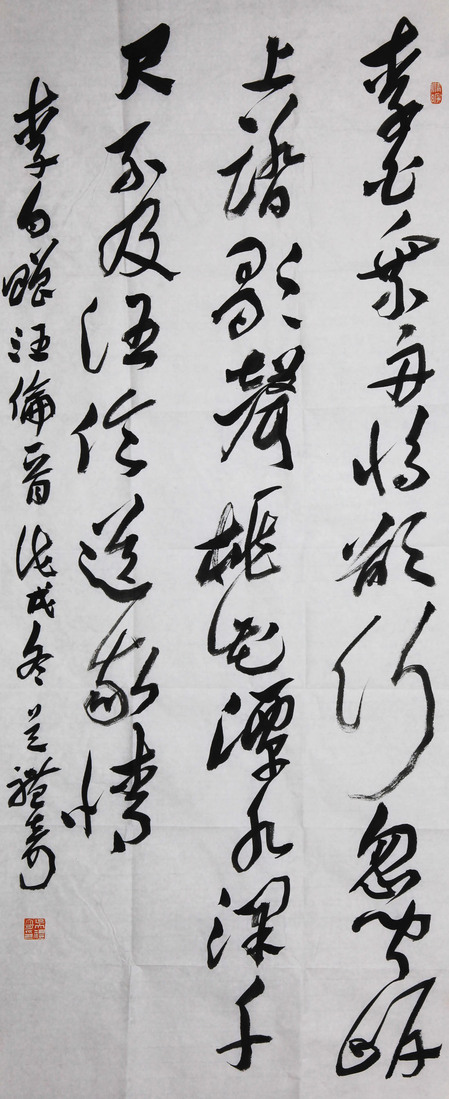 李白乘舟将欲行忽闻岸
上踏歌声桃花潭水深千
尺不及汪伦送我情
李白赠汪伦 戊戌冬